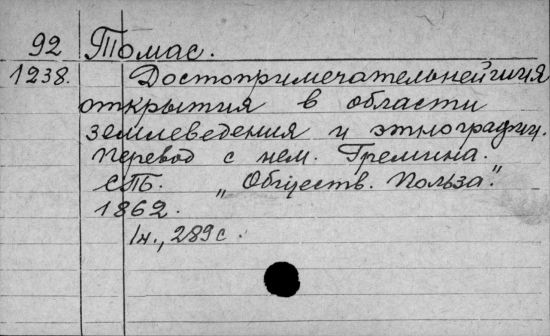 92 Томас.
1238. Достопримечательнейшия
открытия в области
землеведения и этнографии.
Перевод с нем. Гремина.
СПБ. „Обществ. Польза".
1862.
1н., 289 с.